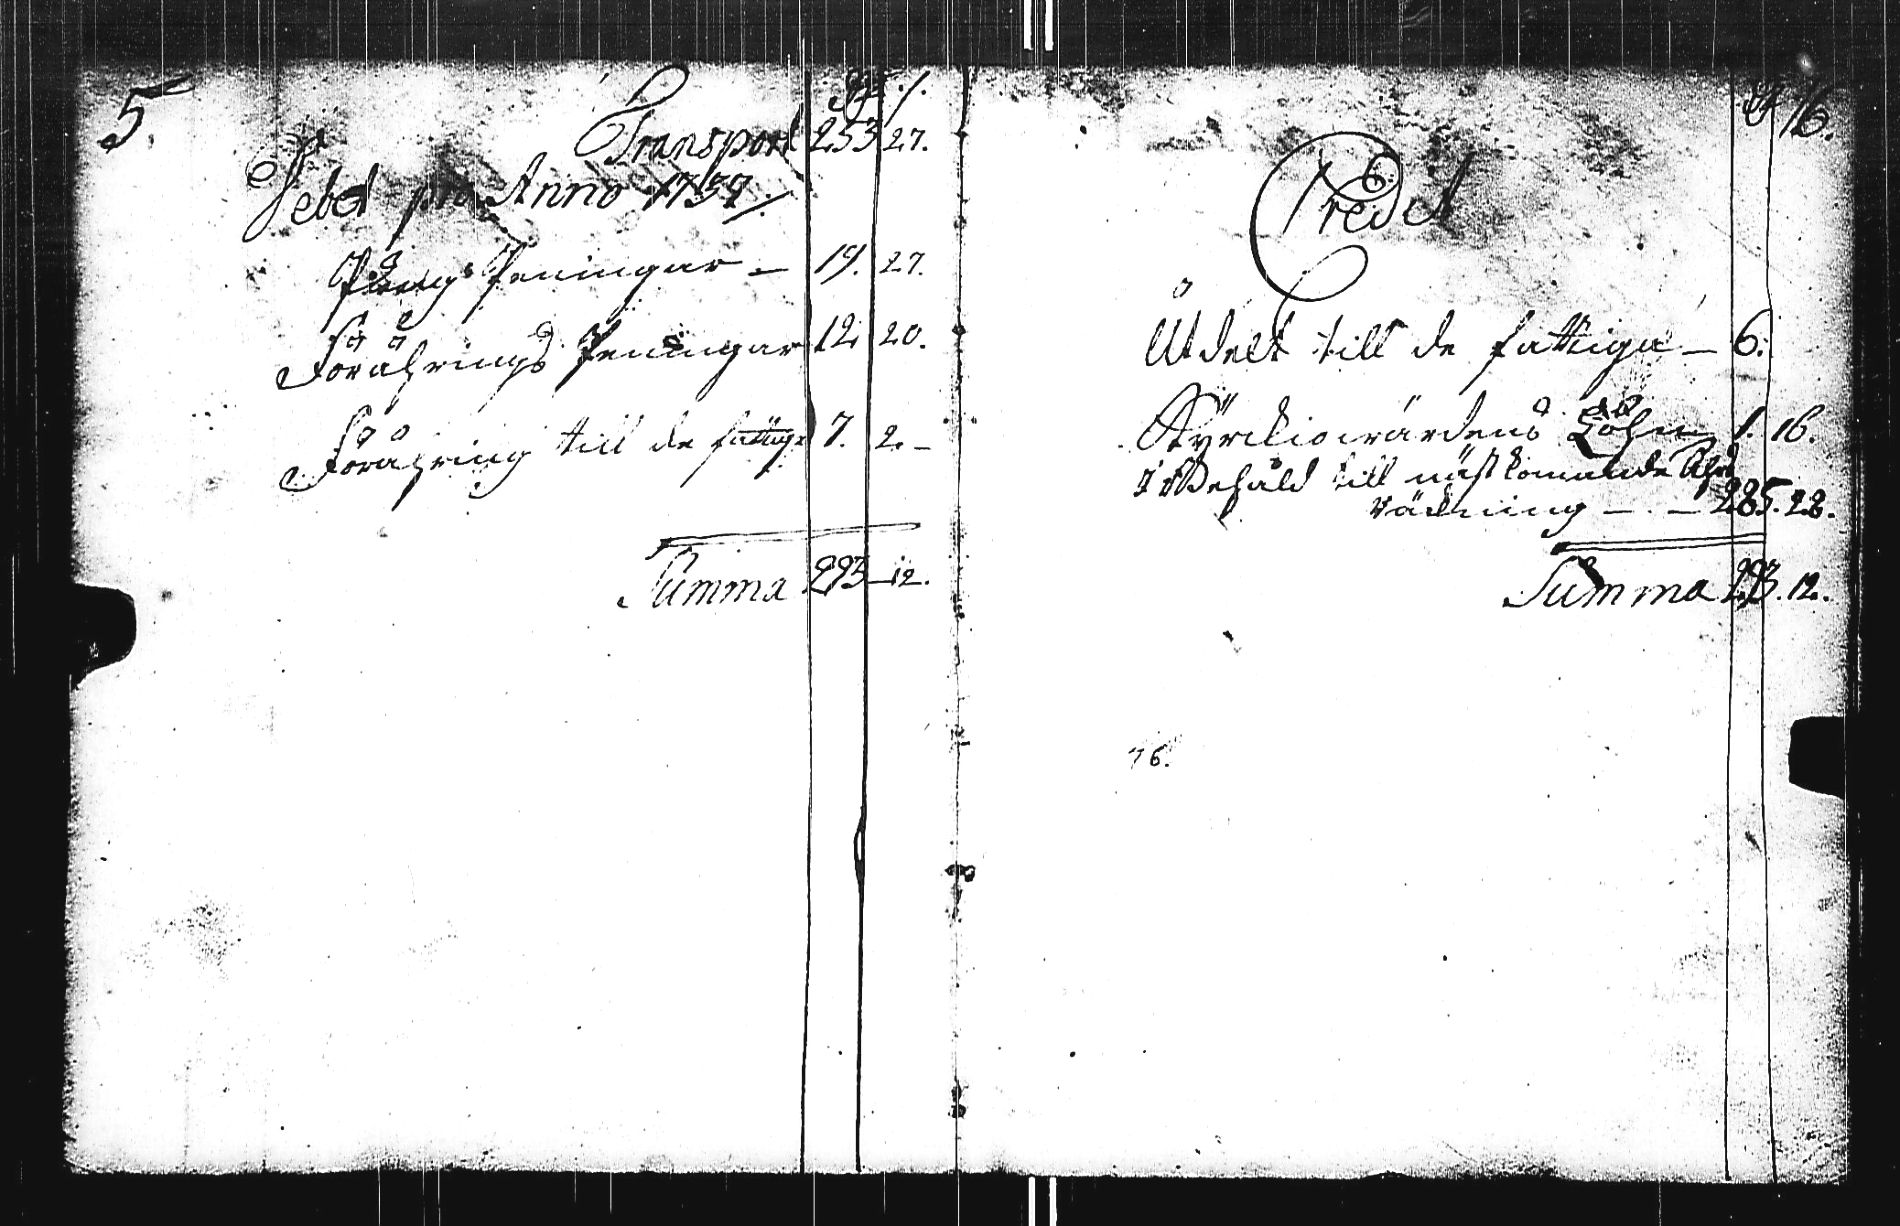 5.
Transport 253 27.
Debet pro Anno 1737
Pungs Peningar — 19. 27.
Förährings Peningar 12 20.
Föráhring till de fattige 7. 2. —
Summa 293 — 12.
16.
Credet
Utdelt till de fattiga — 6.
Kyrckiowärdens Löhn 1. 16.
i Behåld till nästkomande Åhrs
räkning — . — 285. 28.
Summa 293. 12.
76.